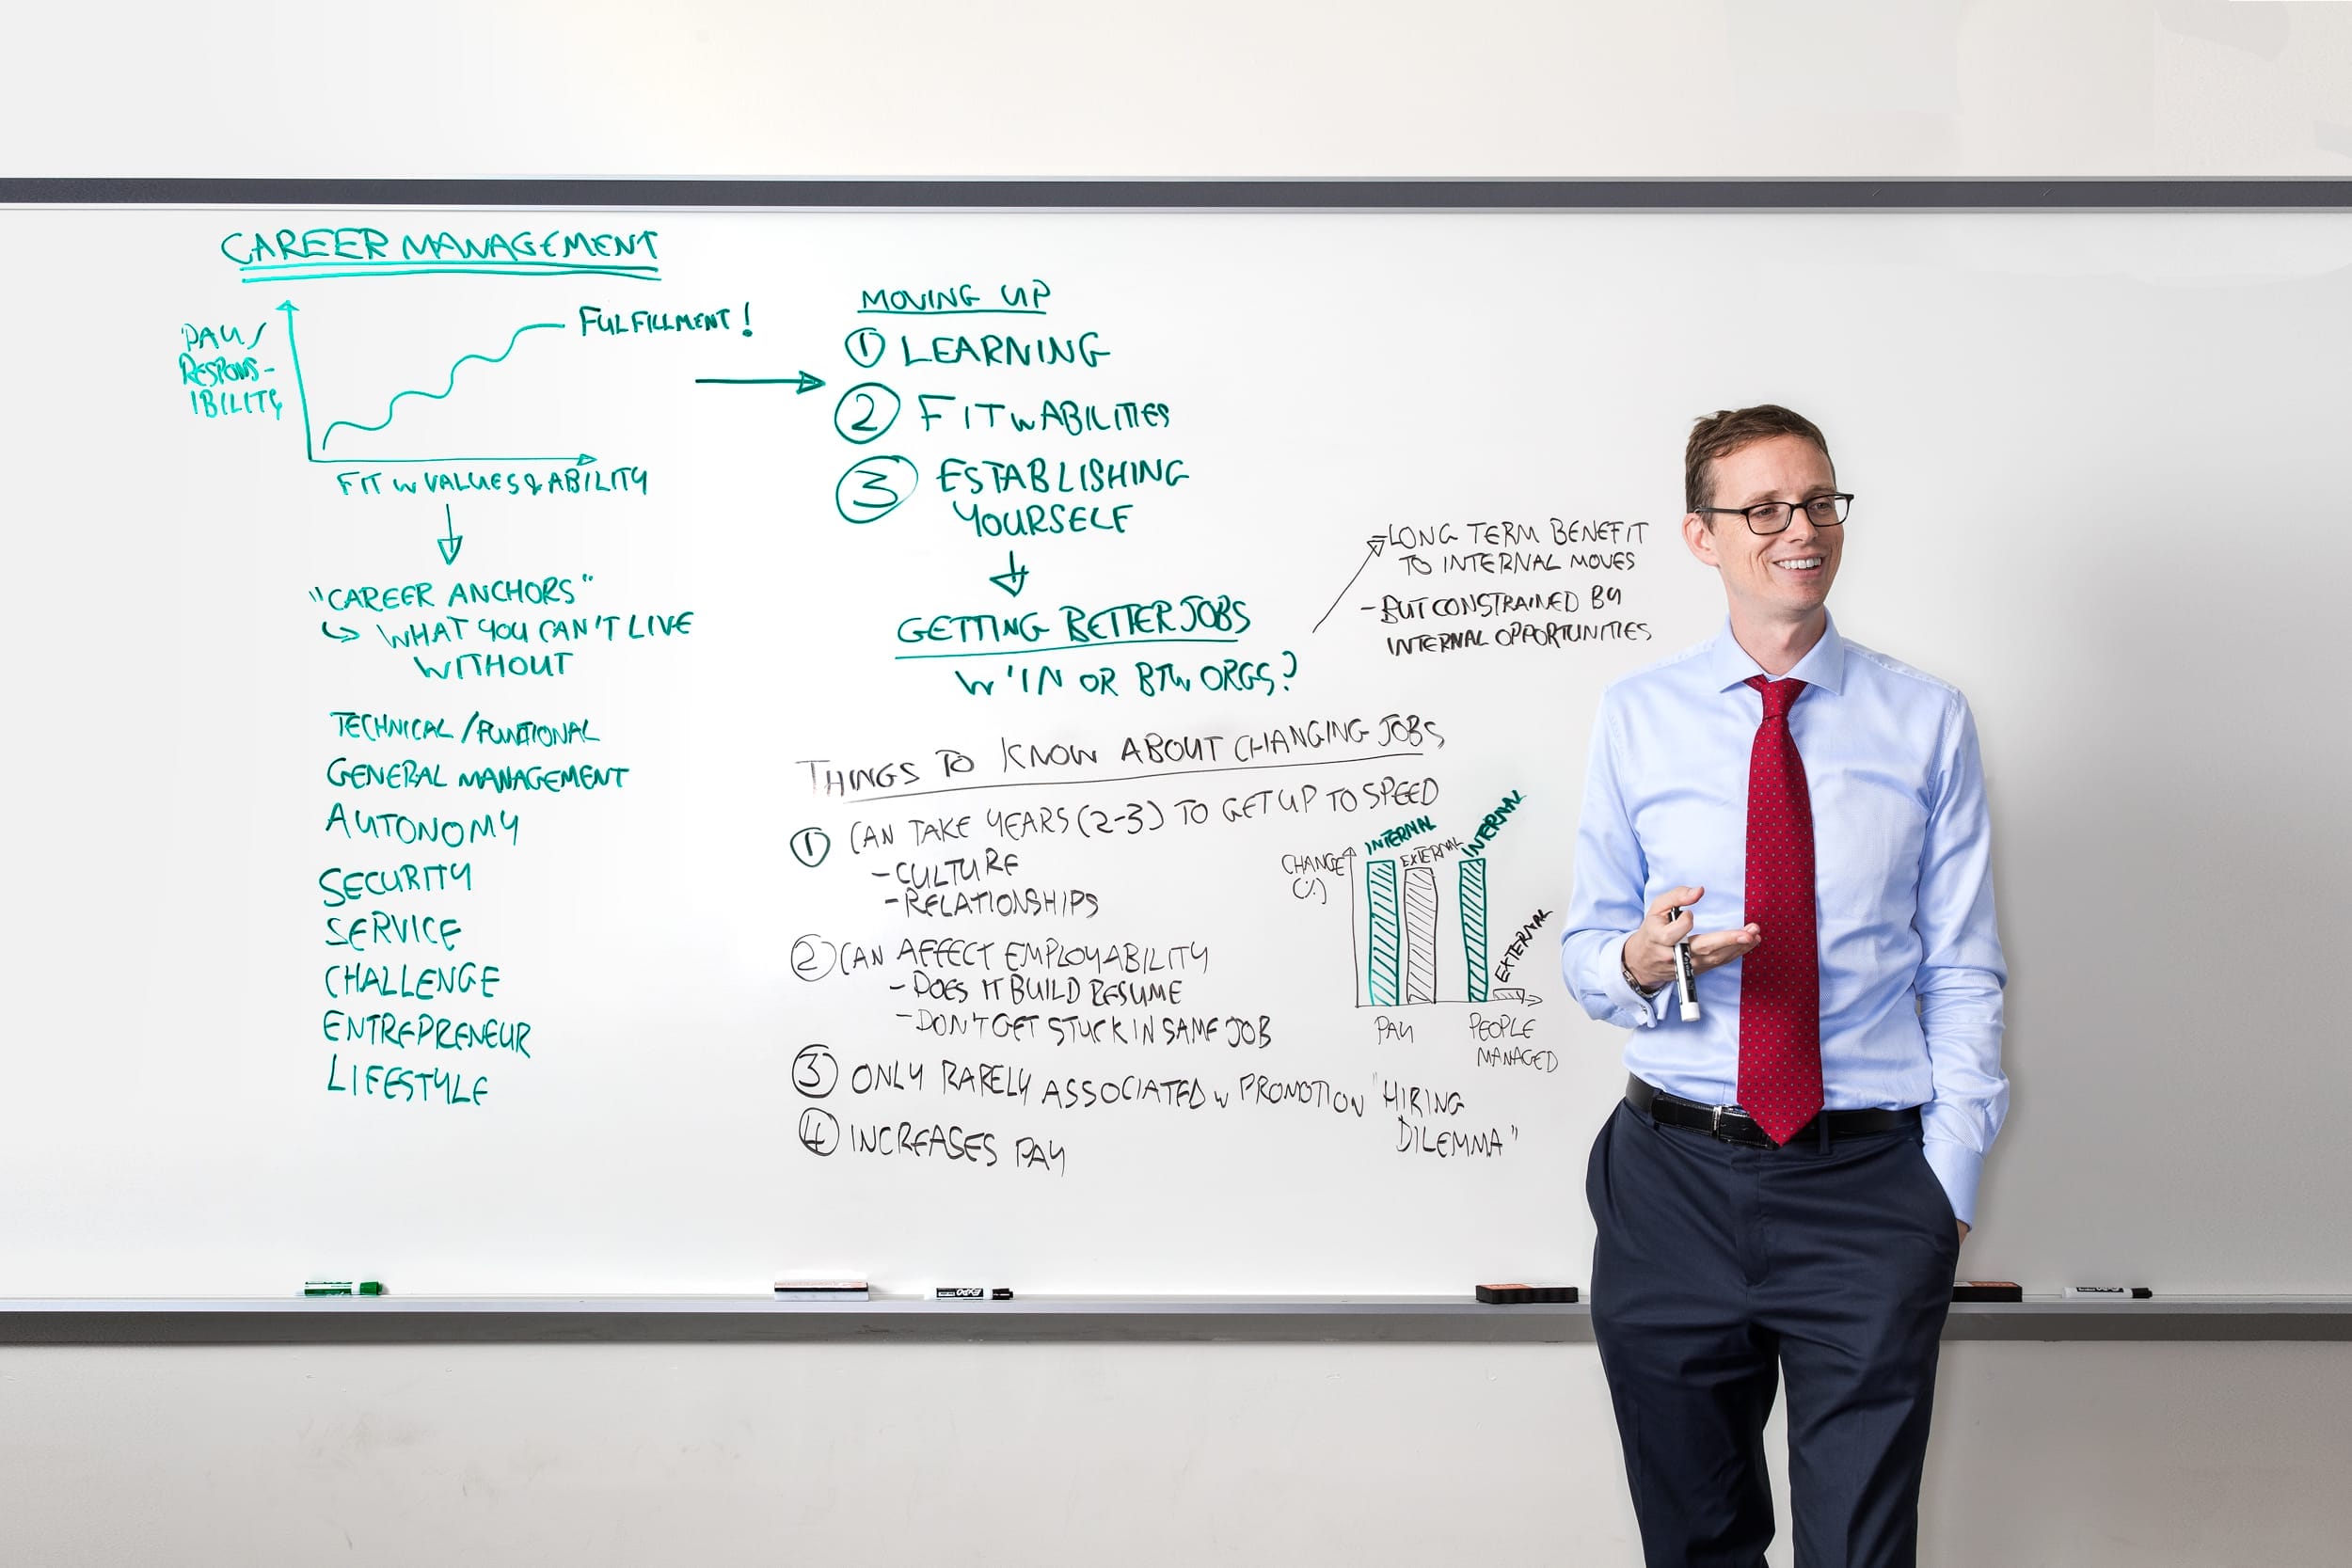 CAREER MANAGEMENT
PAY/
RESPONS-
IBILITY
FULFILLMENT!
FIT W VALUES & ABILITY
"CAREER ANCHORS"
WHAT YOU CAN'T LIVE
WITHOUT
TECHNICAL/FUNTIONAL
GENERAL MANAGEMENT
AUTONOMY
SECURITY
SERVICE
CHALLENGE
ENTREPRENEUR
LIFESTYLE
MOVING UP
1 LEARNING
2 FIT W ABILITIES
3 ESTABLISHING
YOURSELF
GETTING BETTER JOBS
W'IN OR BTW ORGS?
- LONG TERM BENEFIT
TO INTERNAL MOVES
- BUT CONSTRAINED BY
INTERNAL OPPORTUNITIES
THINGS TO KNOW ABOUT CHANGING JOBS
1 CAN TAKE YEARS (2-3) TO GET UP TO SPEED
- CULTURE
- RELATIONSHIPS
2 CAN AFFECT EMPLOYABILITY
- DOES IT BUILD RESUME
- DON'T GET STUCK IN SAME JOB
3 ONLY RARELY ASSOCIATED W PROMOTION "HIRING
DILEMMA"
4 INCREASES PAY
CHANGE
(%)
INTERNAL
EXTERNAL
INTERNAL
EXTERNAL
PAY
PEOPLE
MANAGED
EXPO